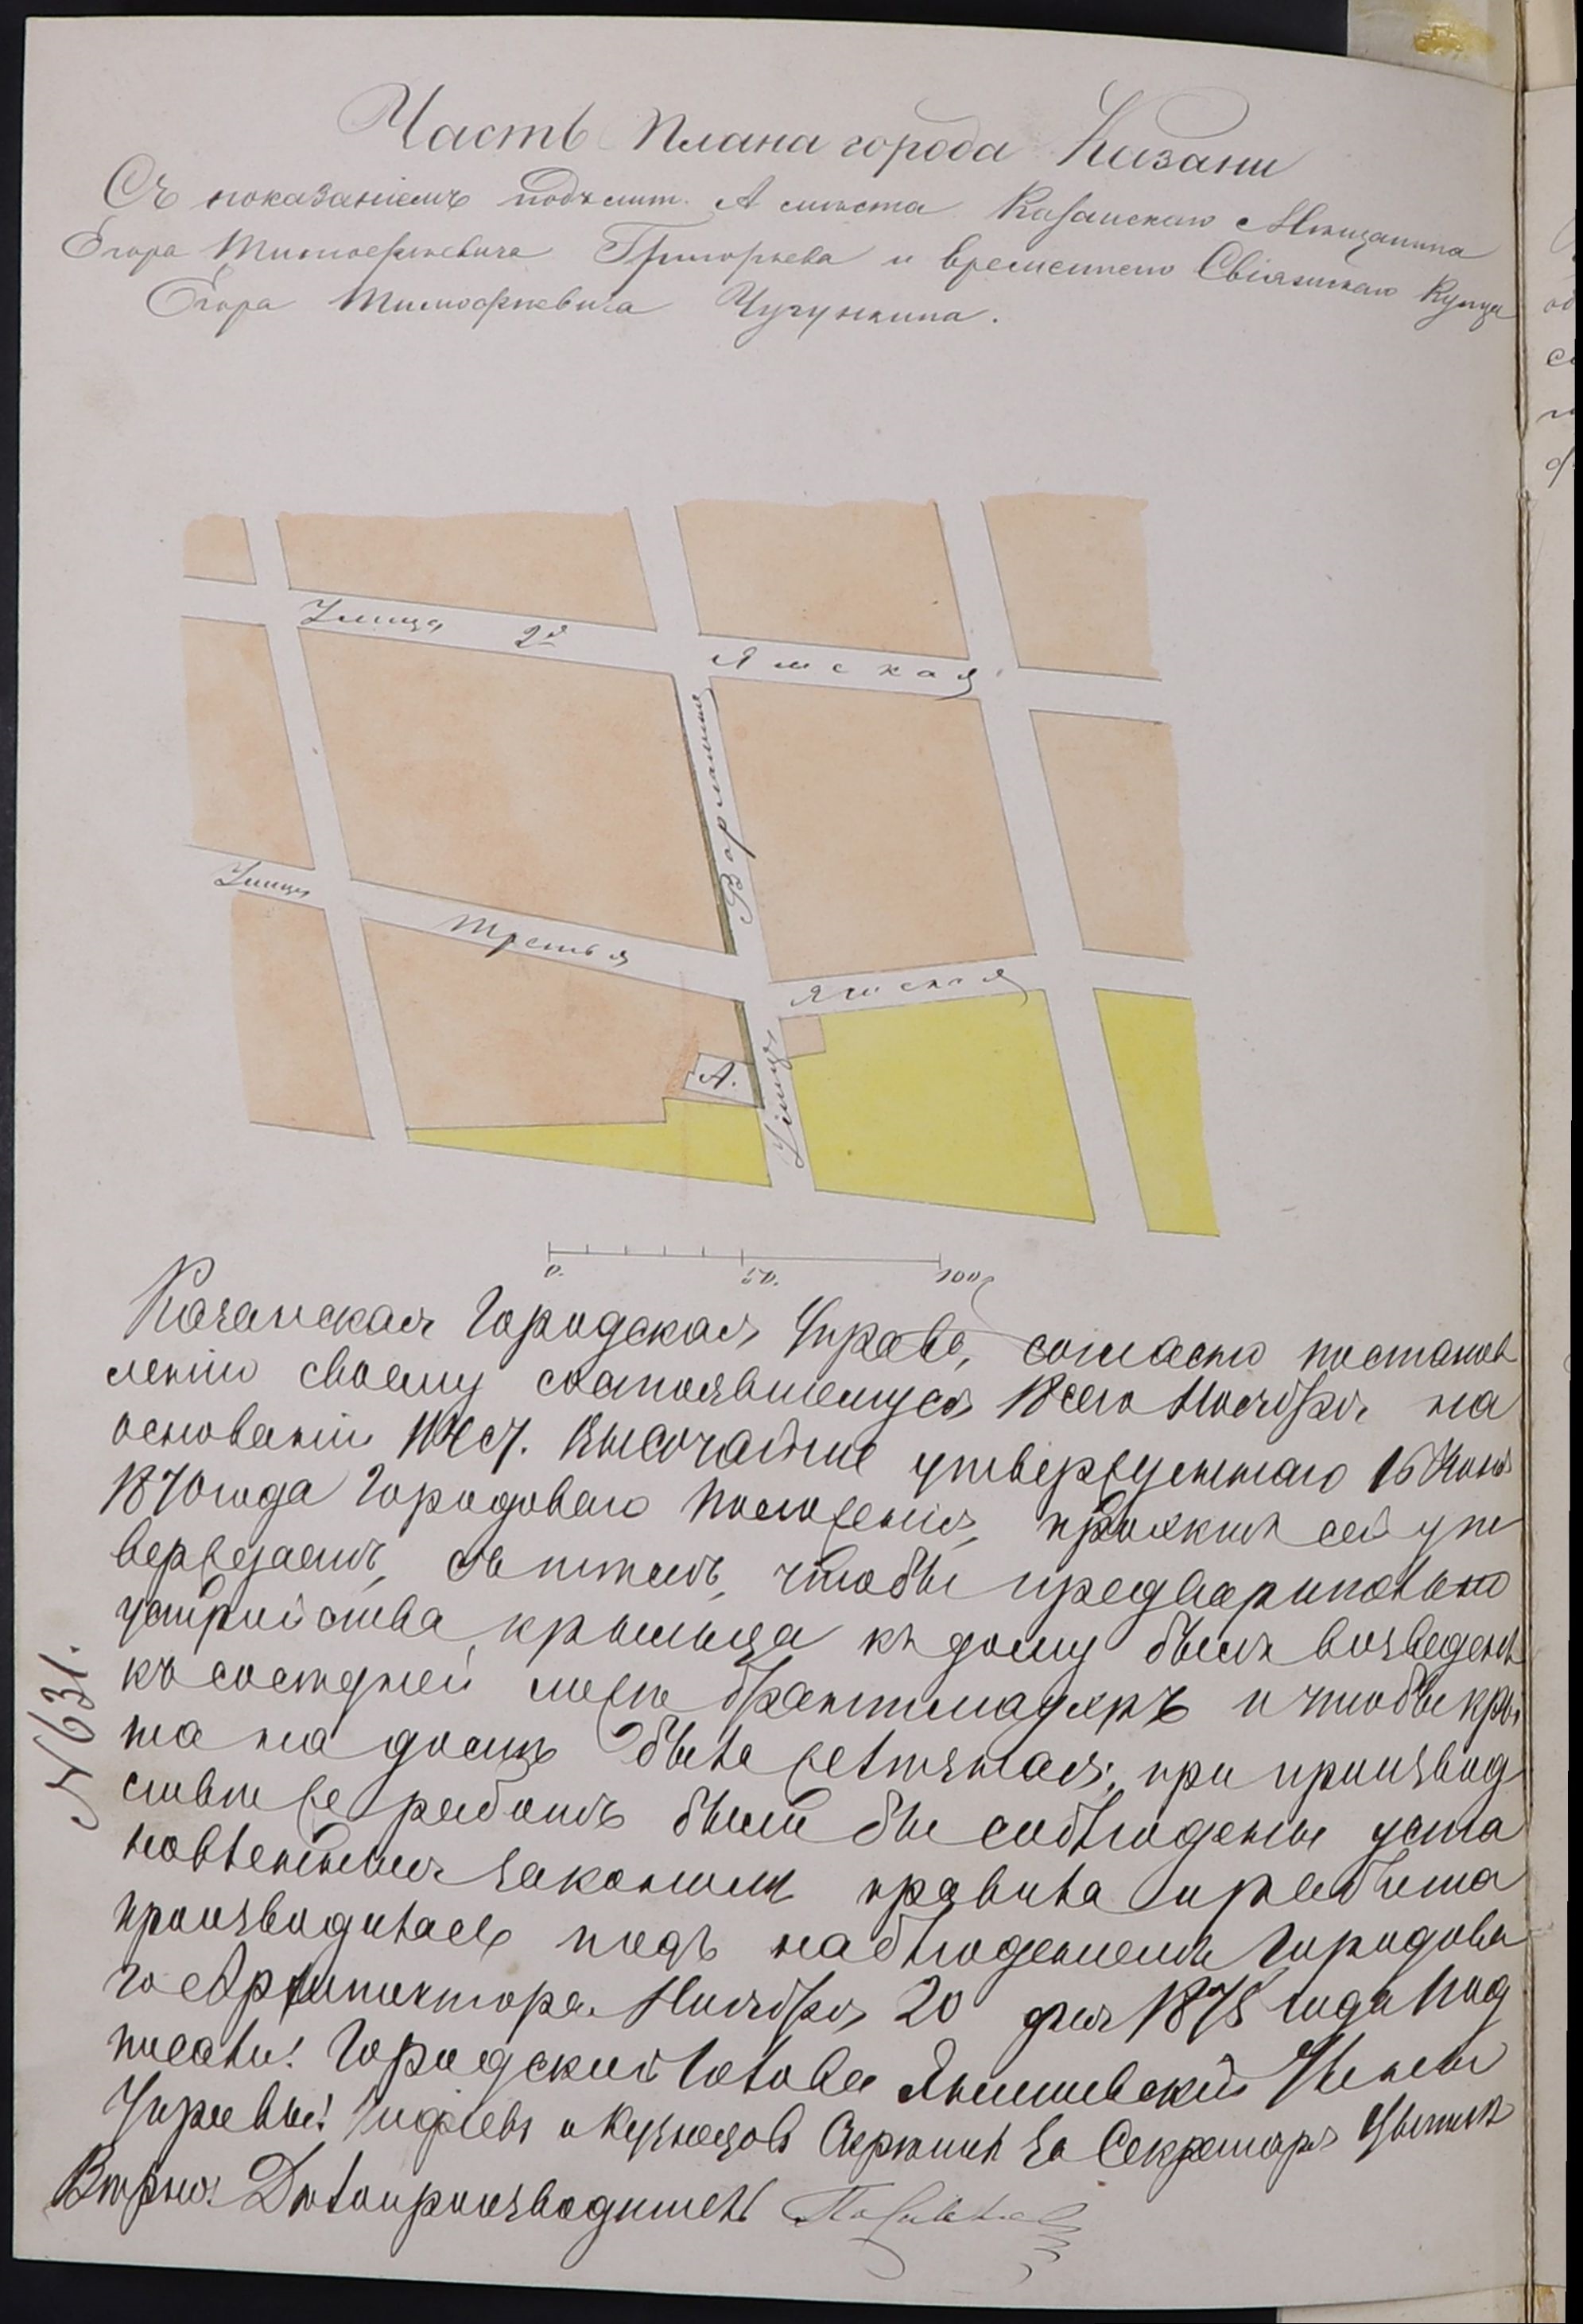 Часть Плана города Казани
Съ показаніемъ подъ лит. А мѣста Казанскаго Мѣщанина
Егора Тимофѣевича Григорьева и временнаго Свіяжскаго Купца
Егора Тимофѣевича Чугункина.
Улица 2я Ямская
Варламова
Улица Третья Ямская
А.
Улица
0. 50. 100
Казанская Городская Управа, согласно постанов
ленію своему состоявшемуся 18 сего Ноября на
основаніи ст. Высочайше утвержденнаго 16 Іюня
1870 года Городоваго Положенія, проэктъ сей ут
верждаетъ, съ тѣмъ, чтобы предварительно
устройства крыльца къ дому былъ возведенъ
къ сосѣдней межѣ брантмауеръ и чтобы кры
ша на домѣ была желѣзная; при производ
ствѣ же работъ были бы соблюдены уста
новленныя закономъ правила и работа
производилась подъ наблюденіемъ Городова
го Архитектора. Ноября 20 дня 1875 года Под
писали: Городской Голова Янишевскій Члены
Управы: и Кузнецовъ Скрѣпилъ за Секретаря
Вѣрно: Дѣлопроизводитель
№ 631.